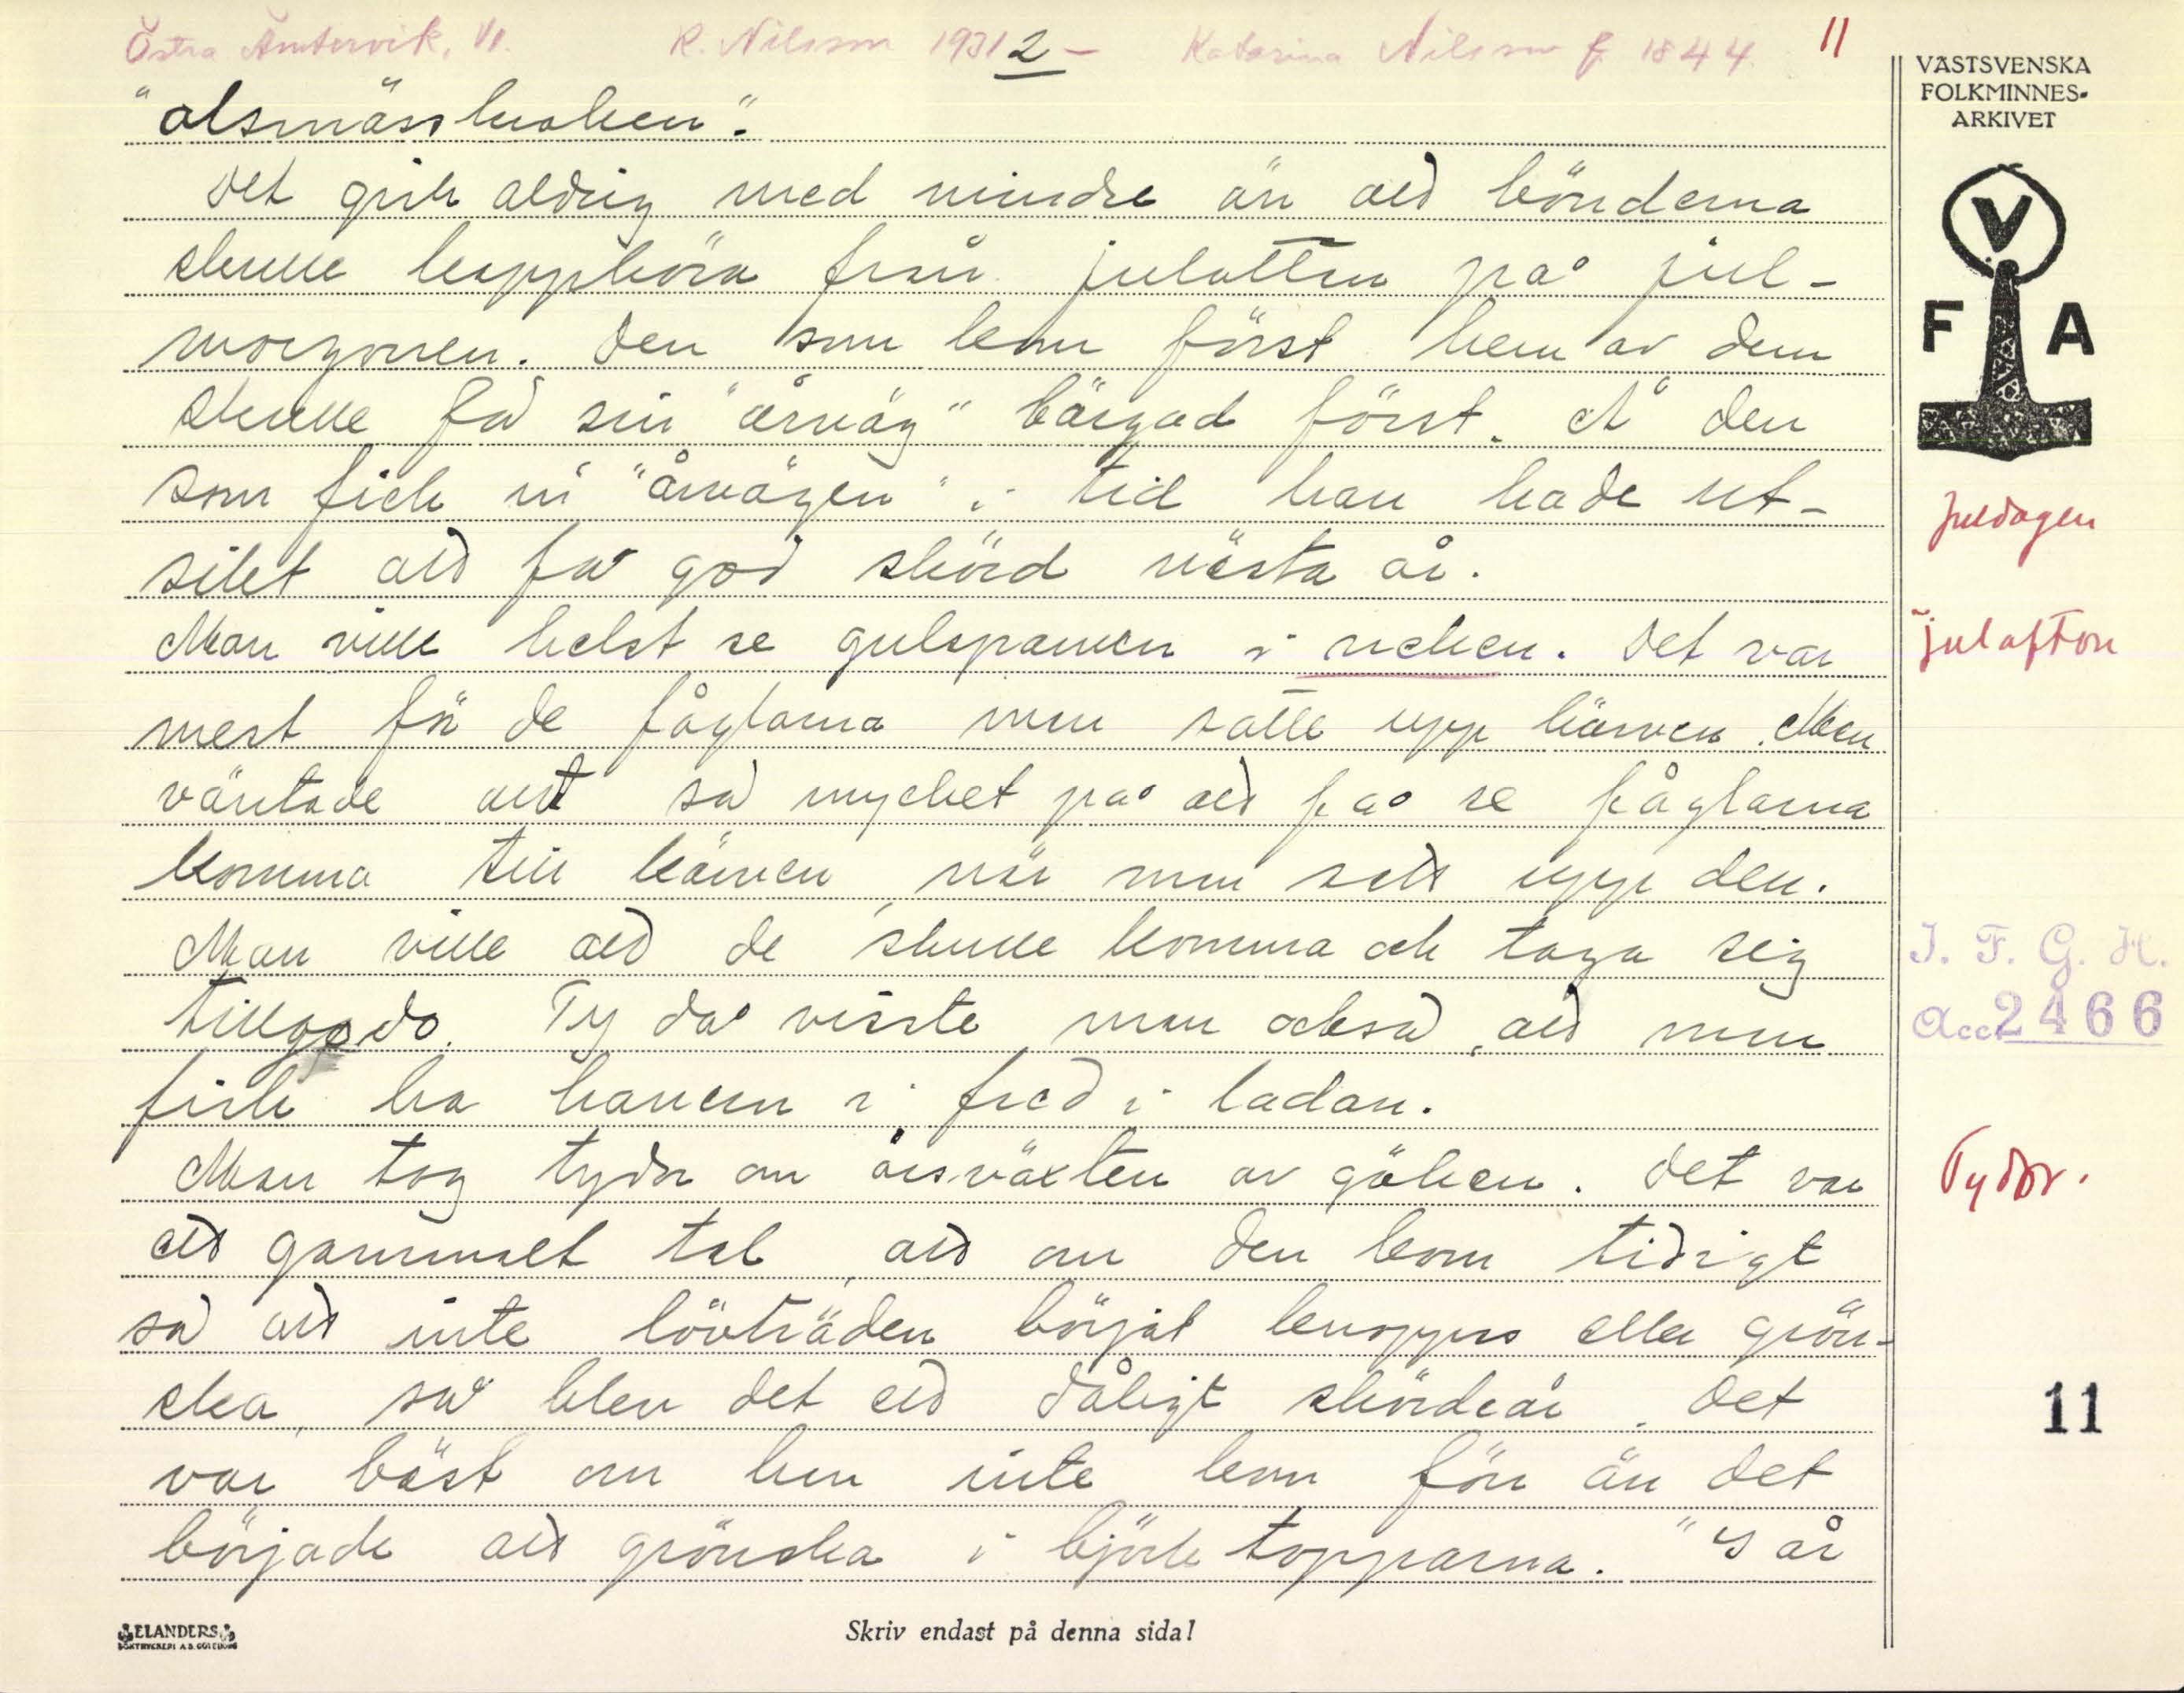 Östra Ämtervik, Vr. R. Nilsson 19312 – Katarina Nilsson f. 1844. 11
VÄSTSVENSKA
FOLKMINNES-
ARKIVET
"olsmässkroken".
Det gick aldrig med mindre än att bönderna
skulle kappköra från julottan på jul-
morgonen. Den som kom först hem av dem
skulle få sin "årväg" bärgad först. Å den
som fick in "årvägen" i tid han hade ut-
siket att få god skörd nästa år.
Man ville helst se gulsparven i neken. Det var
mest för de fåglarna man satte upp kärven. Men
väntade att så mycket på att få se fåglarna
komma till kärven när man satt upp den.
Man ville att de skulle komma och taga sig
tillgodo. Ty då visste man också, att man
fick ha kärven i fred i ladan.
Man tog tydor om årsväxten av göken. Det var
ett gammalt tal, att om den kom tidigt
så att inte lövträden börjat knoppas eller grön-
ska, så blev det ett dåligt skördeår. Det
var bäst om han inte kom förr än det
började att grönska i björktopparna. "S år
V
F A
Juldagen
julafton
I. F. G. H.
Acc. 2466
Tydor.
11
ELANDERS
BOKTRYCKERI A.B. GÖTEBORG
Skriv endast på denna sida!